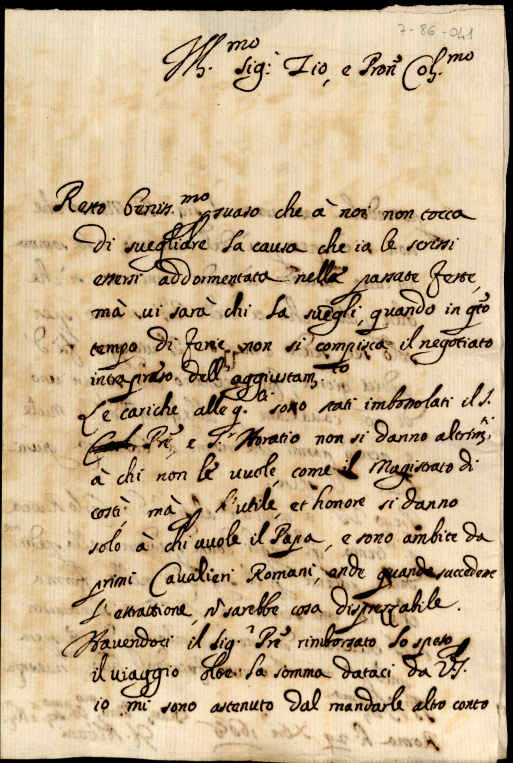 7-86-041
Ill.mo Sig.r Zio, e Pron Col.mo
Resto beniss.mo suaso che à noi non tocca
di svegliare la causa che io le scrissi
essersi addormentata nelle passate feste,
mà vi sarà chi la svegli, quando in q.to
tempo di ferie non si compisca il negotiato
intrapreso dell' aggiustam.to
Le cariche alle q.li sono stati imbossolati il S.
Pre, e S.r Horatio non si danno altrim.ti
à chi non le vuole, come il Magistrato di
costì, mà l'utile, et honore si danno
solo à chi vuole il Papa, e sono ambite da
primi Cavalieri Romani, onde quando succedesse
l'estrattione, n sarebbe cosa disprezzabile.
Havendoci il Sig.r Pre rimborsato lo speso
il viaggio oltre la somma dataci da VS.
io mi sono astenuto dal mandarle altro conto